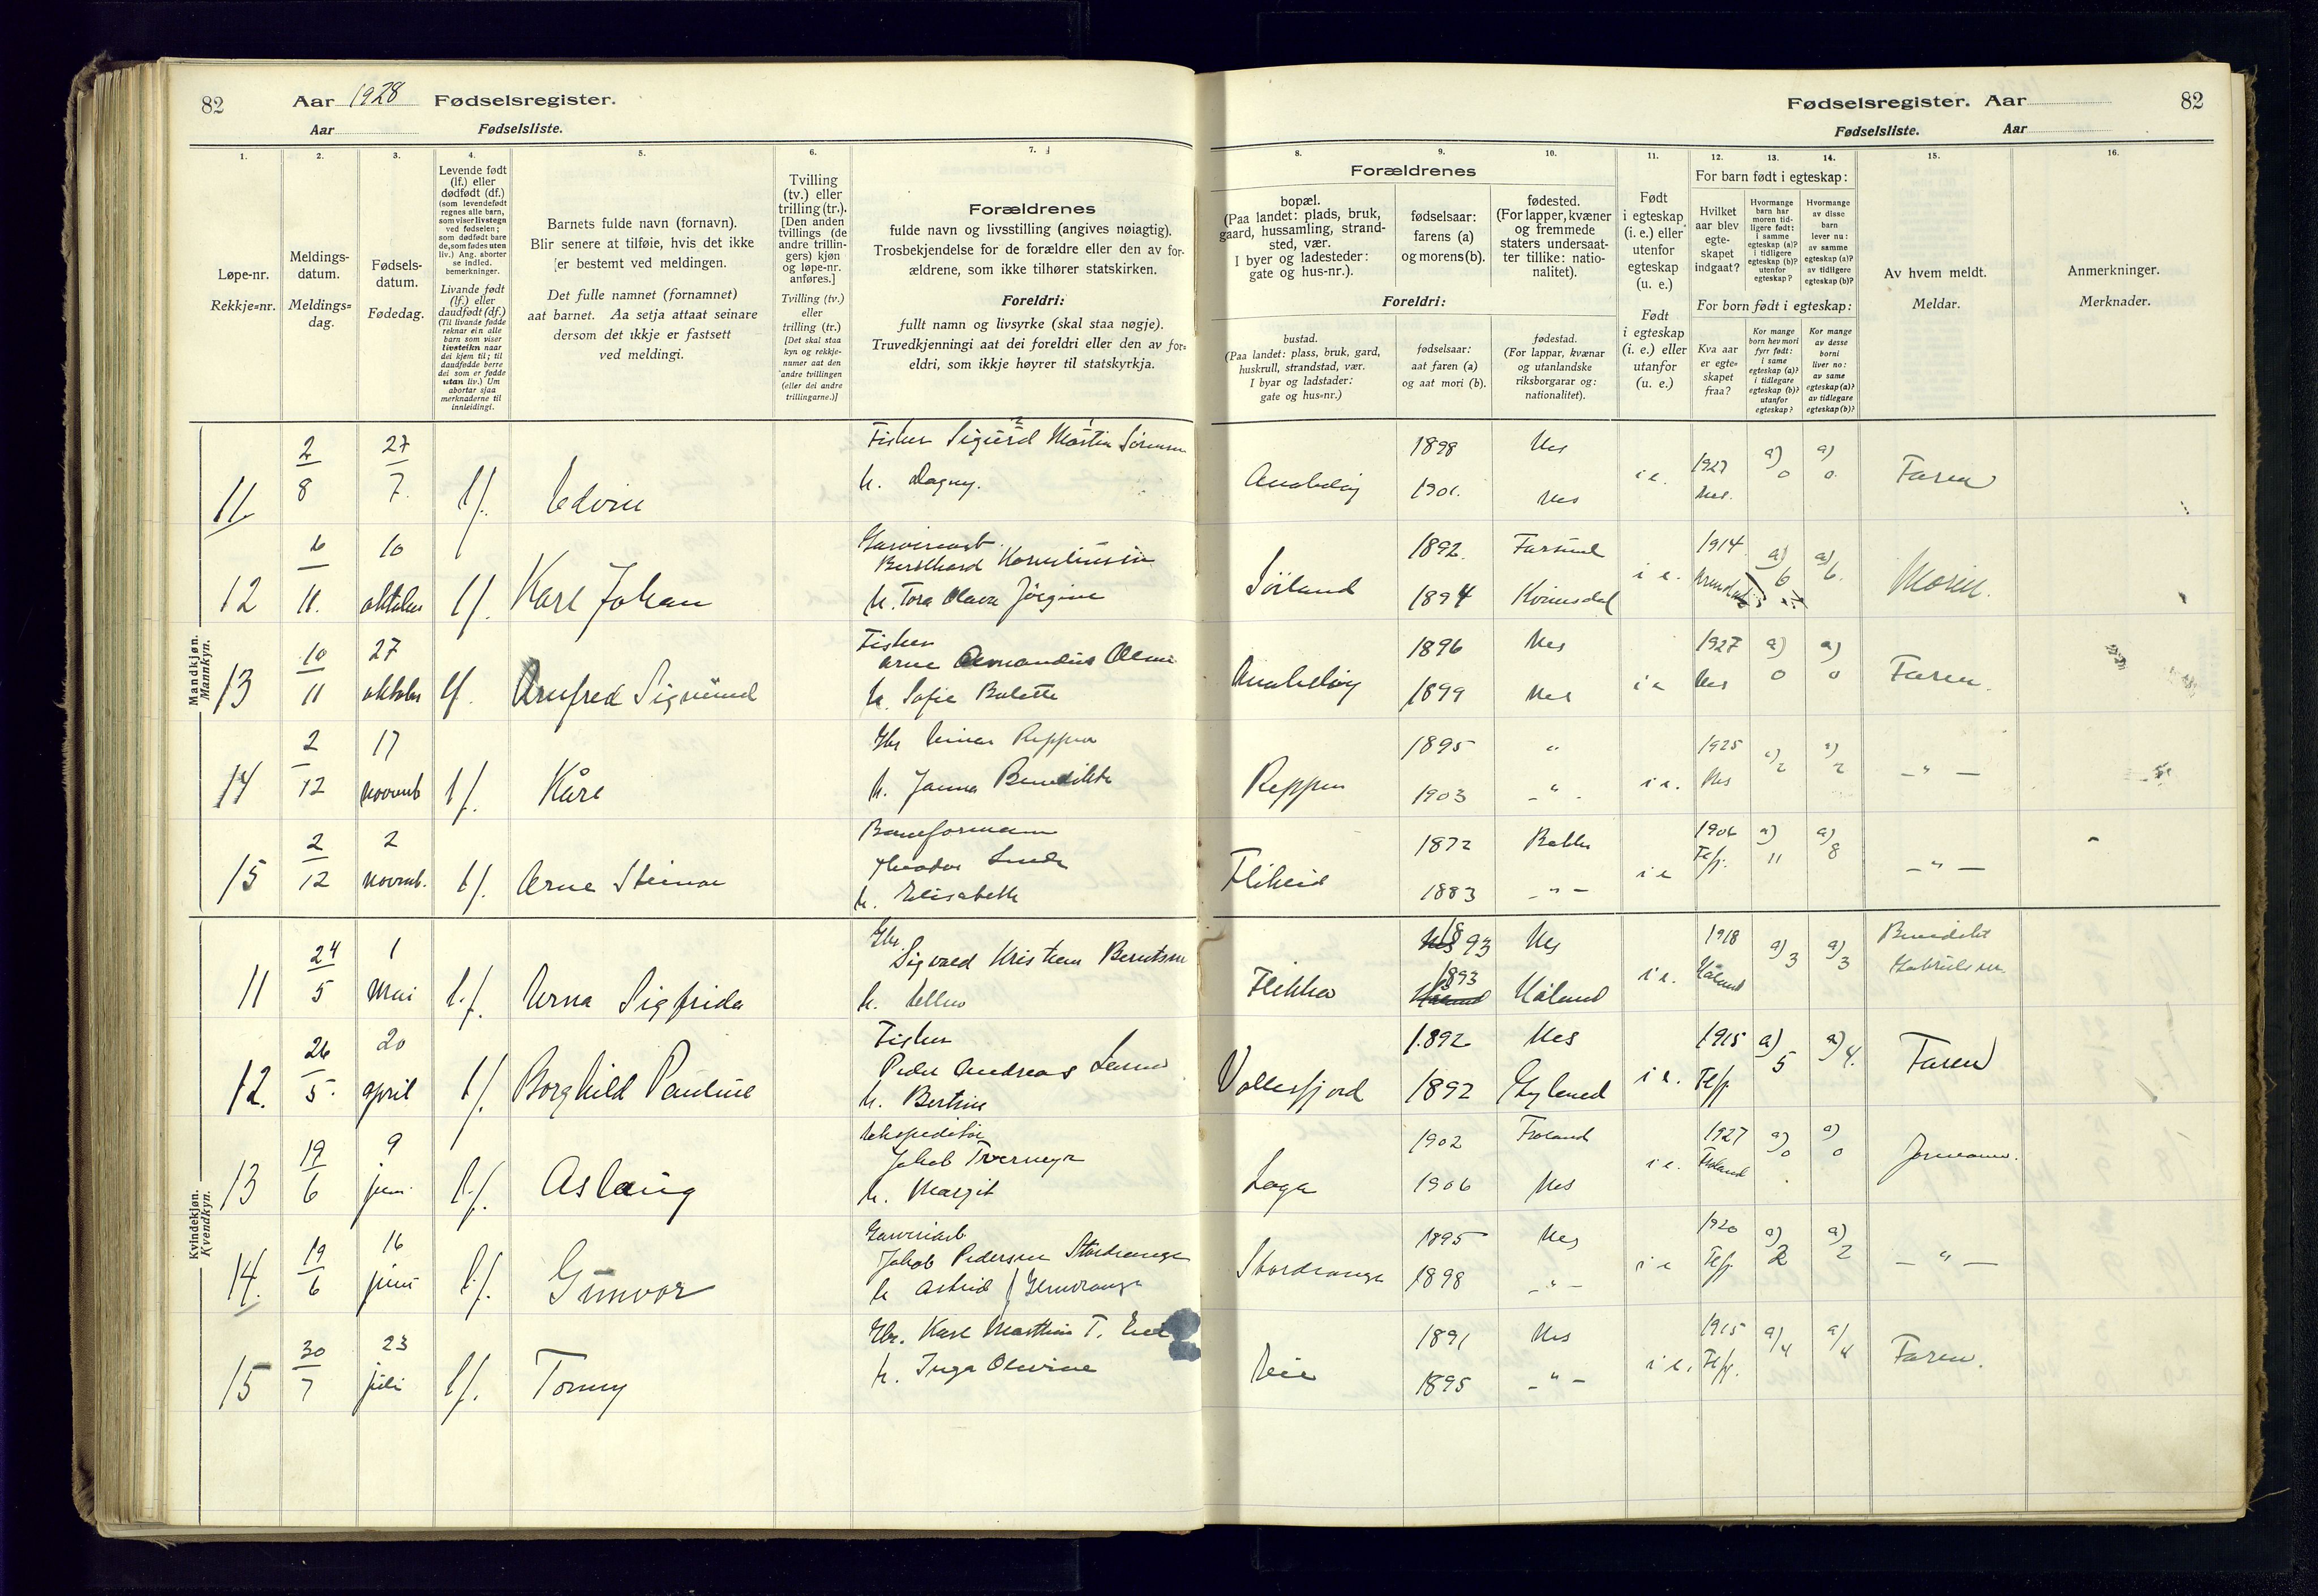 82
Aar 1928 Fødselsregister.
Aar Fødselsliste.
Fødselsregister. Aar
82
Fødselsliste. Aar
1.
2.
3.
4.
5.
6.
7.
8.
9.
10.
11.
12.
13.
14.
15.
16.
Løpe-nr.
Rekkje=nr.
Meldings-
datum.
Meldings=
dag.
Fødsels-
datum.
Fødedag.
Levende født
(lf.) eller
dødfødt (df.)
(som levendefødt
regnes alle barn,
som viser livstegn
ved fødselen;
som dødfødt bare
de, som fødes uten
liv.) Ang. aborter
se indled.
bemerkninger.
Livande født
(lf.) eller
daudfødt (df.)
(Til livande fødde
reknar ein alle
barn som viser
livsteikn naar
dei kjem til; til
daudfødde berre
dei som er fødde
utan liv.) Um
abortar sjaa
merknaderne til
innleidingi.
Barnets fulde navn (fornavn).
Blir senere at tilføie, hvis det ikke
er bestemt ved meldingen.
Det fulle namnet (fornamnet)
aat barnet. Aa setja attaat seinare
dersom det ikkje er fastsett
ved meldingi.
Tvilling
(tv.) eller
trilling (tr.).
[Den anden
tvillings (de
andre trillin-
gers) kjøn
og løpe-nr.
anføres.]
Tvilling (tv.)
eller
trilling (tr.)
[Det skal staa
kyn og rekkje-
numer aat den
andre tvillingen
(eller dei andre
trillingarne.)]
Forældrenes
fulde navn og livsstilling (angives nøiagtig).
Trosbekjendelse for de forældre eller den av for-
ældrene, som ikke tilhører statskirken.
Foreldri:
fullt namn og livsyrke (skal staa nøgje).
Truvedkjenningi aat dei foreldri eller den av for=
eldri, som ikkje høyrer til statskyrkja.
Forældrenes
bopæl.
(Paa landet: plads, bruk,
gaard, hussamling, strand-
sted, vær.
I byer og ladesteder:
gate og hus-nr.).
fødselsaar:
farens (a)
og morens (b).
fødested.
(For lapper, kvæner
og fremmede
staters undersaat-
ter tillike: natio-
nalitet).
Foreldri:
bustad.
(Paa landet: plass, bruk, gard,
huskrull, strandstad, vær.
I byar og ladstader:
gate og hus=nr.)
fødselsaar:
aat faren (a)
og aat mori (b).
fødestad.
(For lappar, kvænar
og utanlandske
riksborgarar og:
nationalitet).
Født
i egteskap
(i. e.) eller
utenfor
egteskap
(u. e.)
Født
i egteskap
(i. e.) eller
utanfor
(u. e.)
For barn født i egteskap:
Hvilket
aar blev
egte-
skapet
indgaat?
Hvormange
barn har
moren tid-
ligere født:
i samme
egteskap (a)?
i tidligere
egteskap (b)?
utenfor
egteskap?
Hvormange
av disse
barn
lever nu:
av samme
egteskap (a)?
av tidligere
egteskap (b)?
For born født i egteskap:
Kva aar
er egte=
skapet
fraa?
Kor mange
born hev mori
fyrr født:
i same
egteskap (a)?
i tidlegare
egteskap (b)?
utanfor
egteskap?
Kor mange
av desse
borni
liver no:
av same
egteskap (a)?
av tidlegare
egteskap (b)?
Av hvem meldt.
Meldar.
Anmerkninger.
Merknader.
Mandkjøn.
Mannkyn.
11. 2/8 27/7. lf. Edvin Fisker Sigurd Martin Sørensen
h. Dagny.
1898 Nes i e. 1927 a) 0 a) 0. Faren
1901. Nes Nes.
12 6/11. 10 oktober lf. Karl Johan Garveriarb.
Bernhard Korneliussen
h. Tora Olava Jørgine
Söiland 1892. Farsund i e. 1914 a) 6 a) 6. Moren.
1894 Kvinesdal
13 10/11 27 oktober lf. Arnfred Sigmund Fisker
Arne Amandus Olsen
h. Sofie Bolette
1896 Nes i e 1927 a) 0 a) 0 Faren.
1899 Nes Nes
14 2/12 17 novemb lf. Kåre Gbr Einar Reppen
h. Janna Benedikte
Reppen 1895 " i e. 1925 a) 2 a) 2 — " —
1903 - " - Nes
15 2/12 2 novmb. lf. Arne Steinar Baneformann
Theodor Lunde
h. Elisabeth
Flikeid 1872 Bakke i e 1906 a) 11 a) 8 — " —
1883 - " - Fefj.
Kvindekjøn.
Kvendkyn.
11 24/5 1 Mai l.f. Erna Sigfrida Gbr.
Sigvald Kristian Berntsen
h. Ellen
Flikka 1893 Nes i e. 1918 a) 3 a) 3 Benedikt
1893 Håland Håland Gabrielsen.
12. 26/5. 20 april lf. Borghild Pauline Fisker
Peder Andreas
h. Bertine
Vollesfjord 1892 Nes i e. 1915 a) 5 a) 4. Faren
1892 Gyland Fefj.
13 19/6 9 juni l.f. Aslaug Ekspeditör
Jakob Tvermyr
h. Margit
Loga 1902 Froland i e. 1927 a) 0 a) 0 Jormoren.
1906 Nes Froland
14. 19/6 16 juni l.f. Gunvor Garveriarb
Jakob Pedersen Stordrange
h Astrid f Glendrange
Stordrange 1895 Nes i e 1920 a) 2 a) 2 — " —
1898 - " - Fefj.
15 30/7 23 juli l.f. Tonny Gbr. Karl Marthin T. Eie
h. Inga Olevine
Eie 1891 Nes i e. 1915 a/4 a/4 Faren.
1895 - " - Fefj.